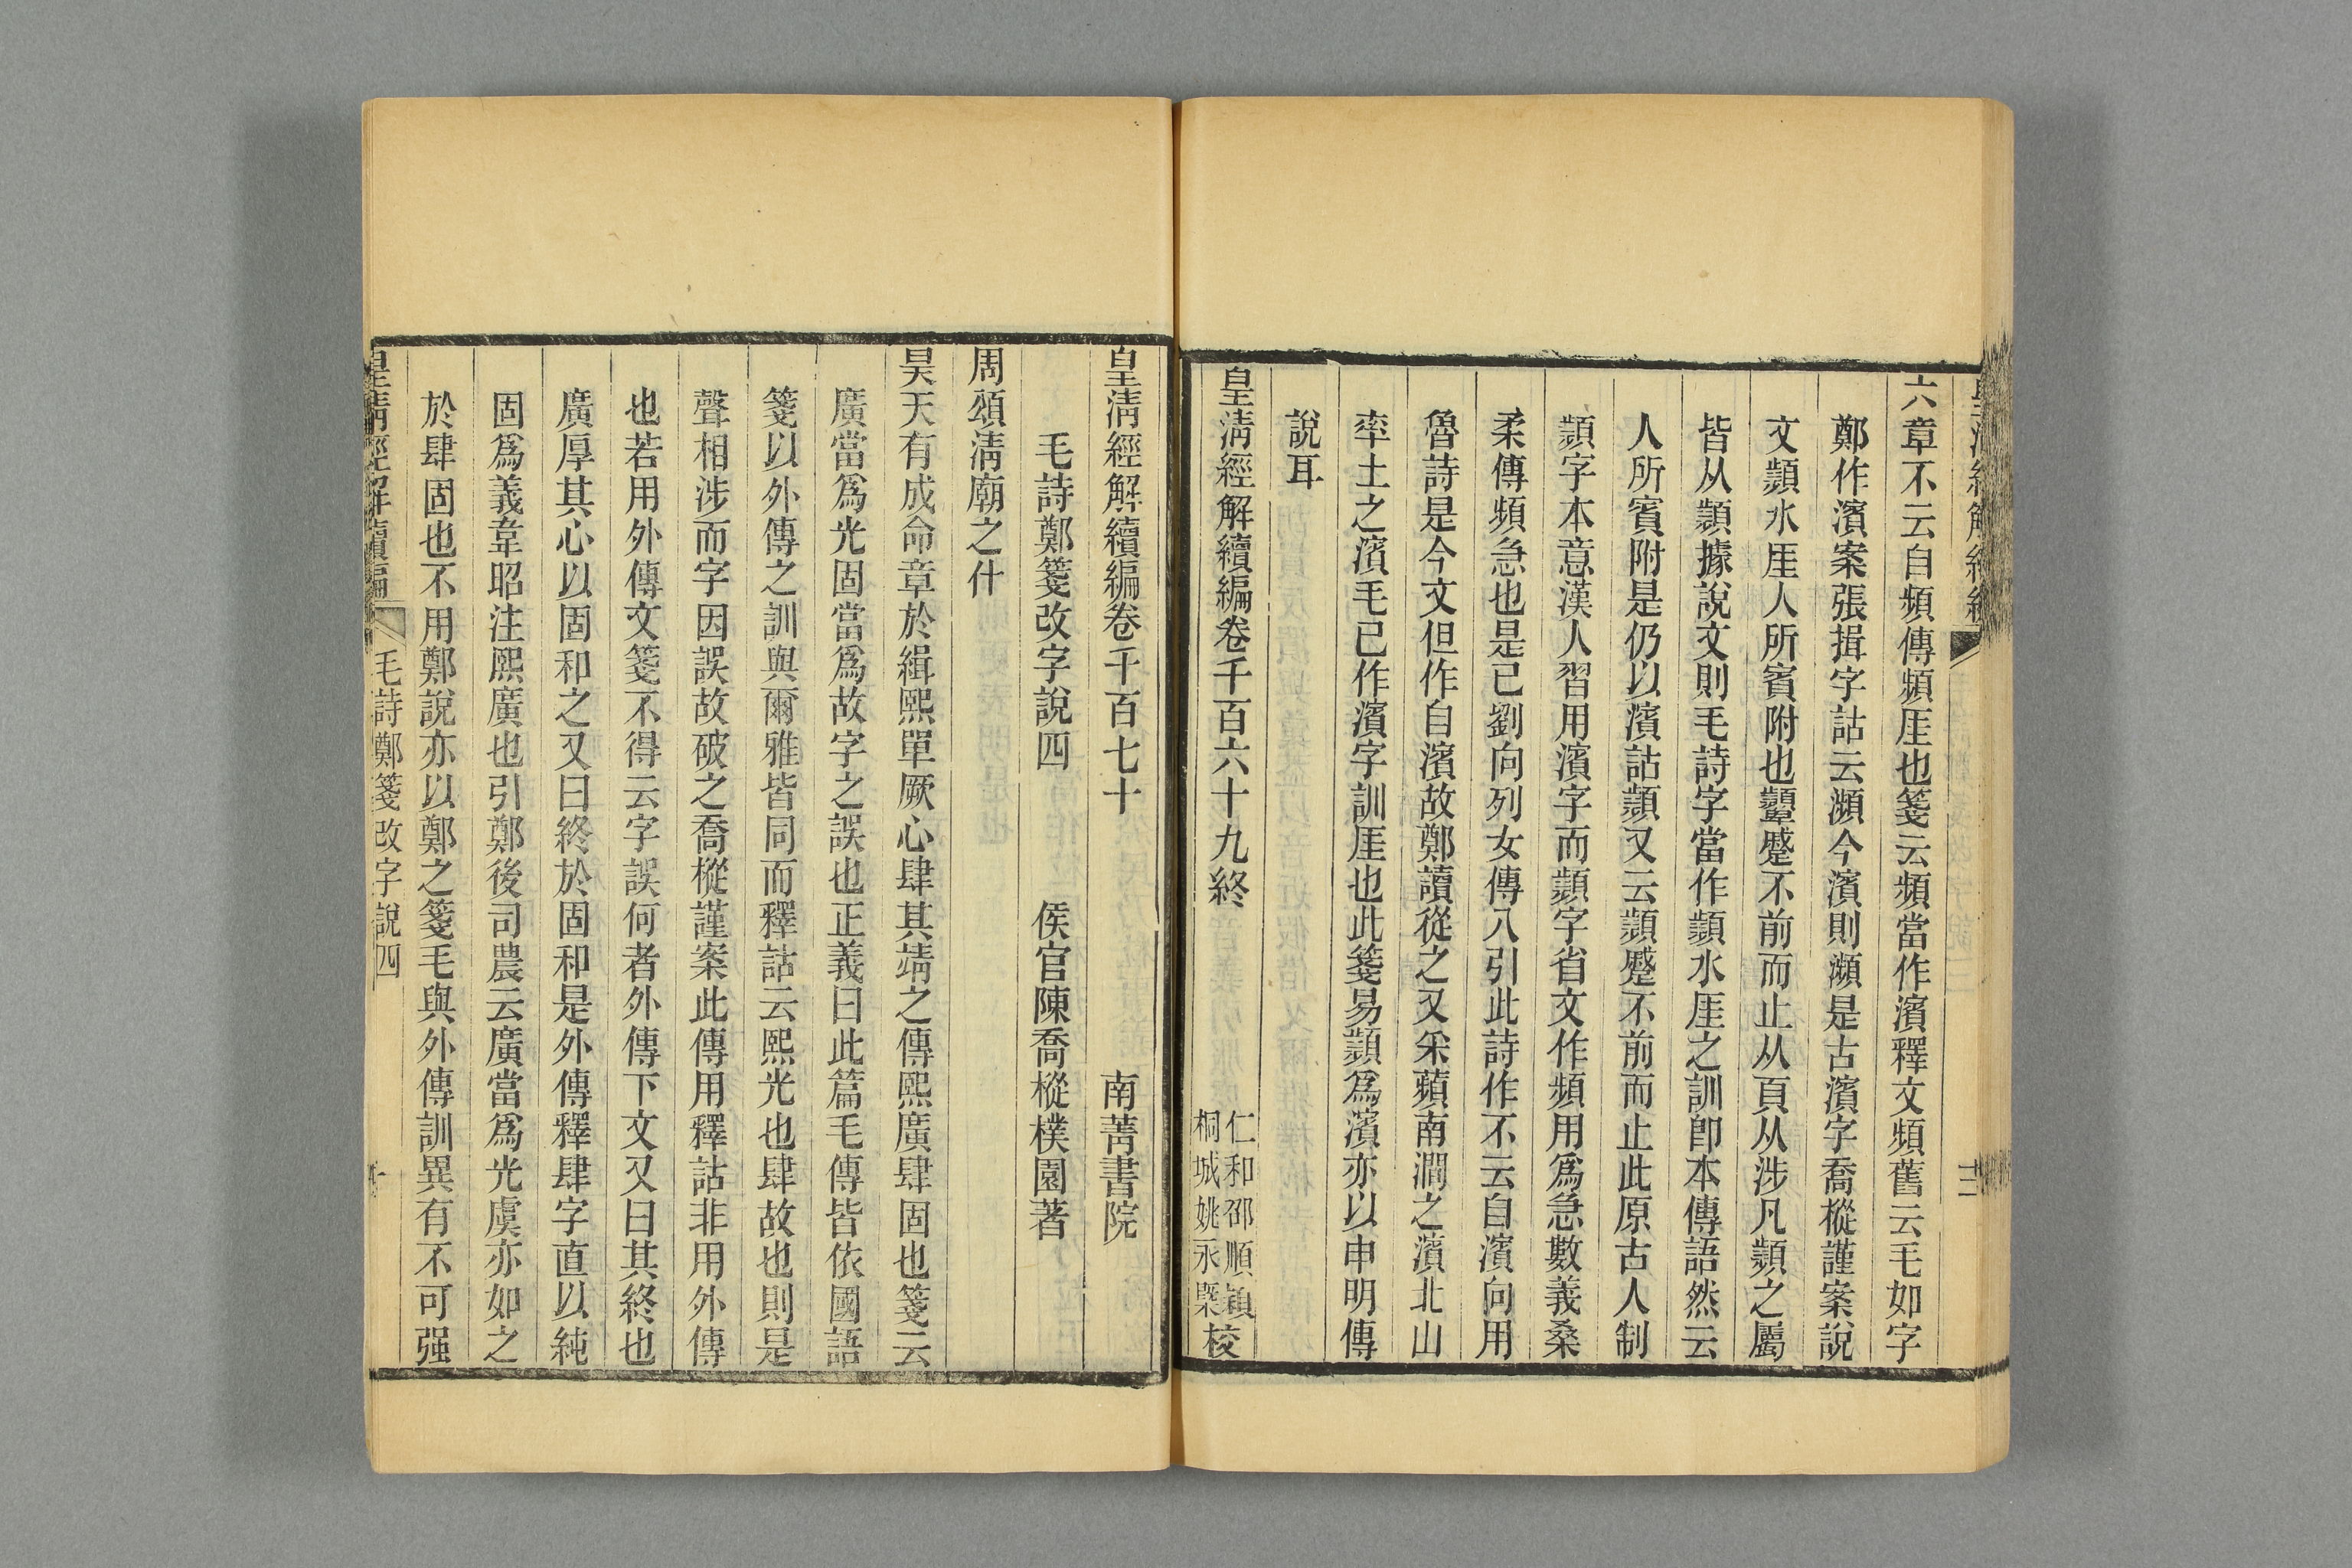 六章不云自頻傳頻厓也箋云頻當作濱釋文頻舊云毛如字
鄭作濱案張揖字詁云瀕今濱則瀕是古濱字喬樅謹案說
文顮水厓人所賓附也顰蹙不前而止从頁从涉凡顮之屬
皆从顮據說文則毛詩字當作顮水厓之訓卽本傳語然云
人所賓附是仍以濱詁顮又云顮蹙不前而止此原古人制
顮字本意漢人習用濱字而顮字省文作頻用爲急數義桑
柔傳頻急也是已劉向列女傳八引此詩作不云自濱向用
魯詩是今文但作自濱故鄭讀從之又采蘋南澗之濱北山
率土之濱毛已作濱字訓厓也此箋易顮爲濱亦以申明傳
說耳
皇淸經解續編卷千百六十九終
仁和邵順潁
桐城姚永槩校
皇淸經解續編卷千百七十
南菁書院
毛詩鄭箋改字說四
侯官陳喬樅樸園著
周頌淸廟之什
昊天有成命章於緝熙單厥心肆其靖之傳熙廣肆固也箋云
廣當爲光固當爲故字之誤也正義曰此篇毛傳皆依國語
箋以外傳之訓與爾雅皆同而釋詁云熙光也肆故也則是
聲相涉而字因誤故破之喬樅謹案此傳用釋詁非用外傳
也若用外傳文箋不得云字誤何者外傳下文又曰其終也
廣厚其心以固和之又曰終於固和是外傳釋肆字直以純
固爲義韋昭注熙廣也引鄭後司農云廣當爲光虞亦如之
於肆固也不用鄭說亦以鄭之箋毛與外傳訓異有不可强
皇淸經解續編
毛詩鄭箋改字說四